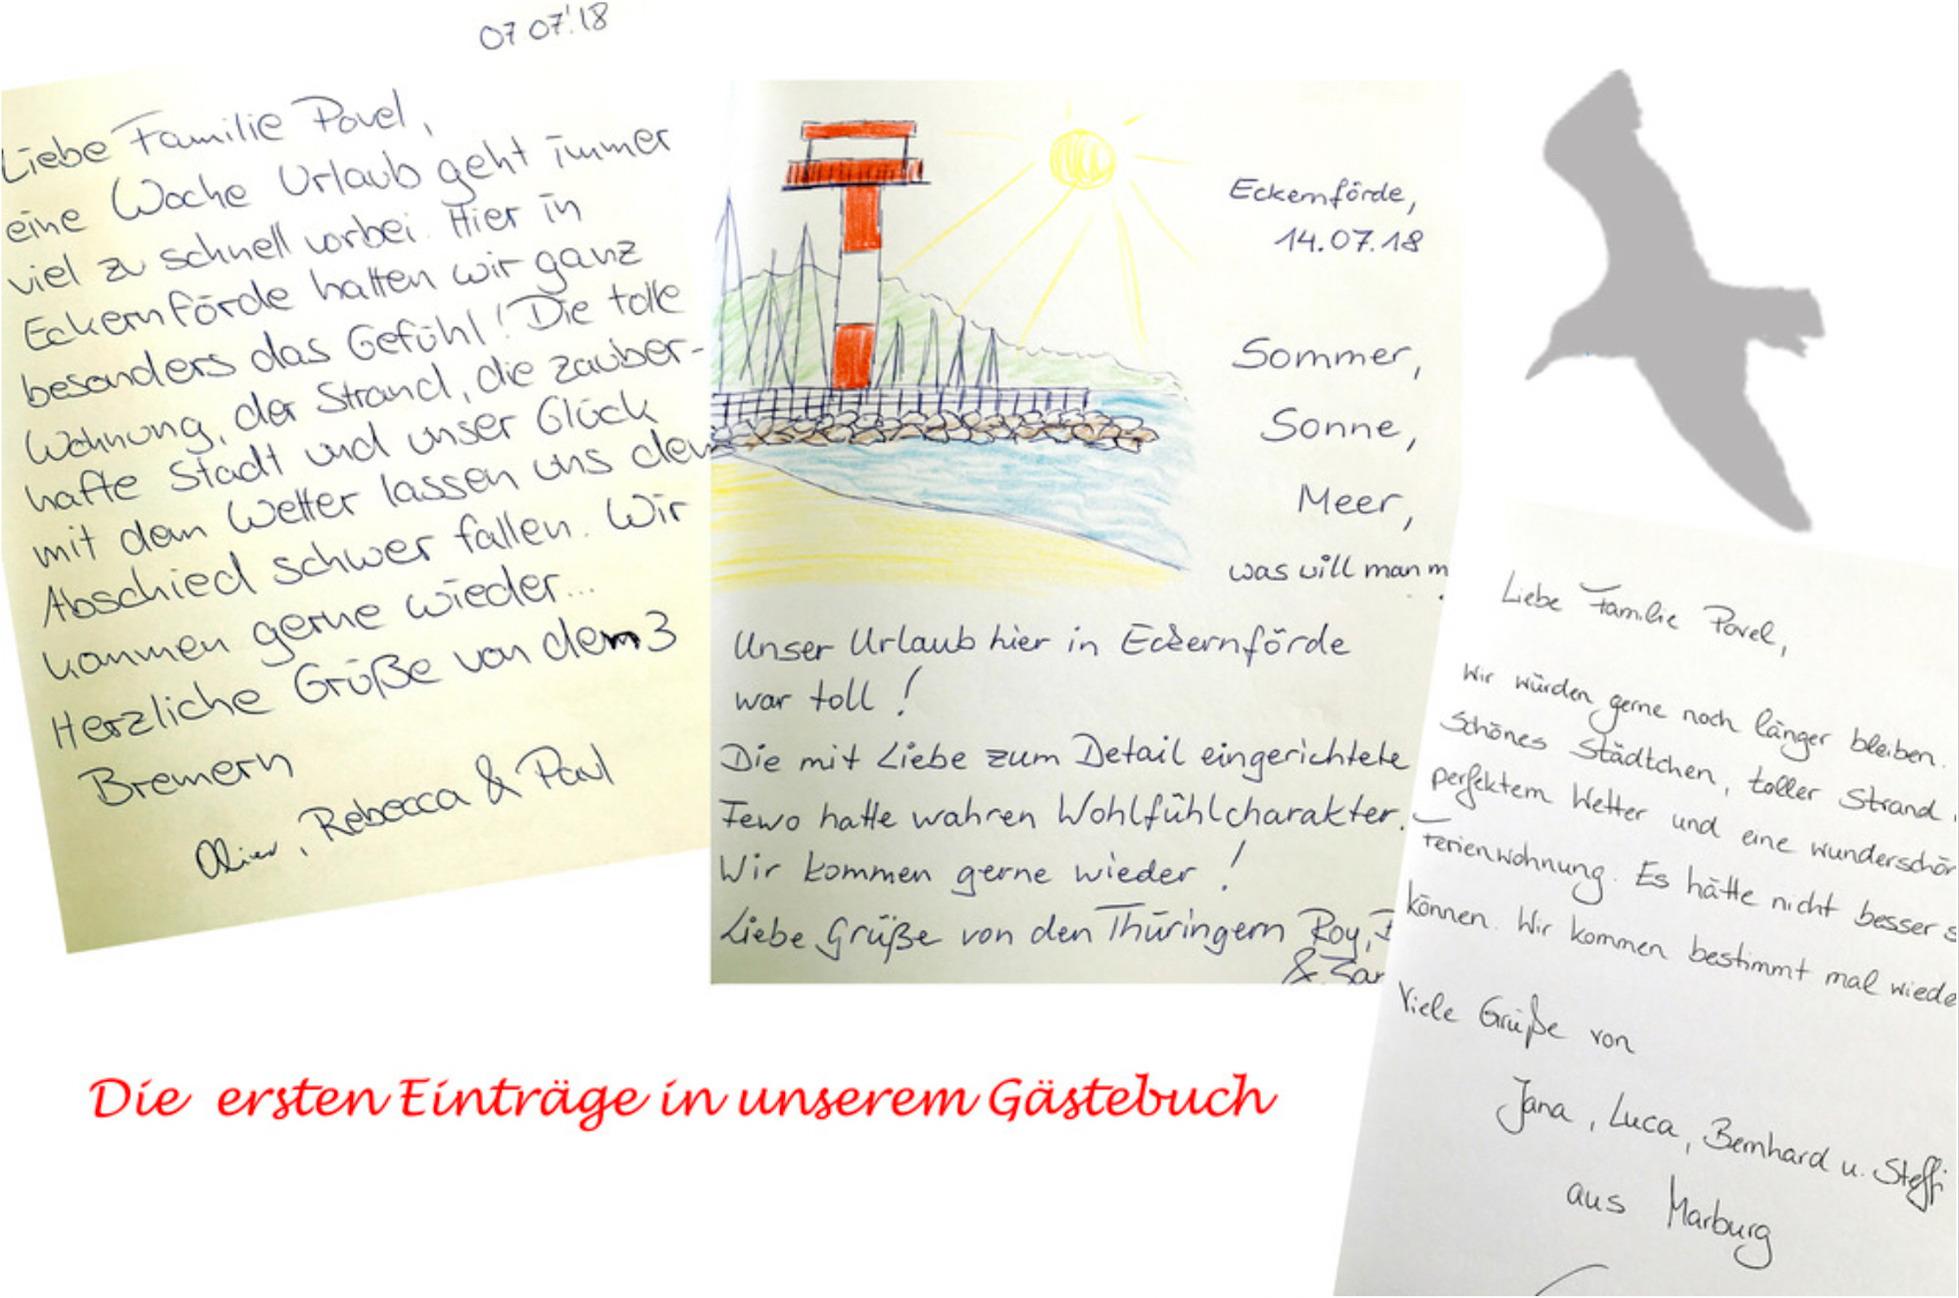 07 07.'18
Liebe Familie Povel,
eine Woche Urlaub geht immer
viel zu schnell vorbei. Hier in
Eckernförde hatten wir ganz
besonders das Gefühl! Die tolle
Wohnung, der Strand, die zauber-
hafte Stadt und unser Glück
mit dem Wetter lassen uns den
Abschied schwer fallen. Wir
kommen gerne wieder...
Herzliche Grüße von den 3
Bremern
Oliver, Rebecca & Paul
Eckernförde,
14.07.18
Sommer,
Sonne,
Meer,
was will man m
Unser Urlaub hier in Eckernförde
war toll!
Die mit Liebe zum Detail eingerichtete
Fewo hatte wahren Wohlfühlcharakter.
Wir kommen gerne wieder!
Liebe Grüße von den Thüringern Roy,
&
Liebe Familie Povel,
Wir würden gerne noch länger bleiben.
Schönes Städtchen, toller Strand,
perfektem Wetter und eine wunderschön
Ferienwohnung. Es hätte nicht besser s
können. Wir kommen bestimmt mal wiede
Viele Grüße von
Jana, Luca, Bernhard u. Steffi
aus Marburg
Die ersten Einträge in unserem Gästebuch